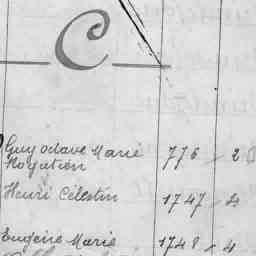 C
Guy octave Marie 776 2
Rogatien
Henri Célestin 1747 4
Eugène Marie 1748 4